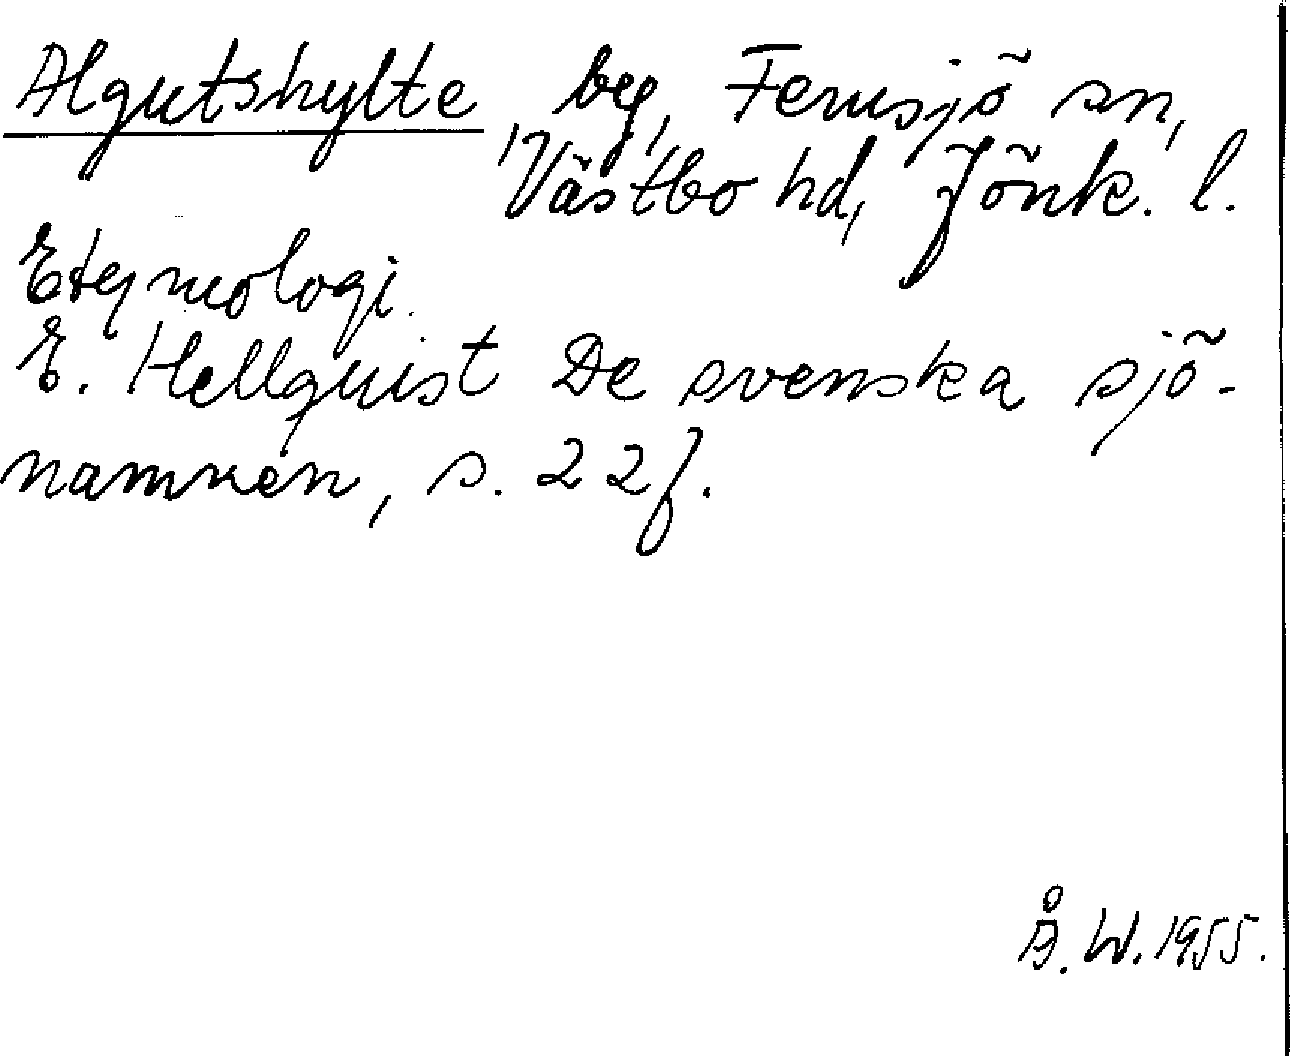 Algutshylte by, Femsjö sn,
Västbo hd, Jönk. l.
Etymologi.
E. Hellquist De svenska sjö-
namnen, s. 22 f.
Å. W. 1955.